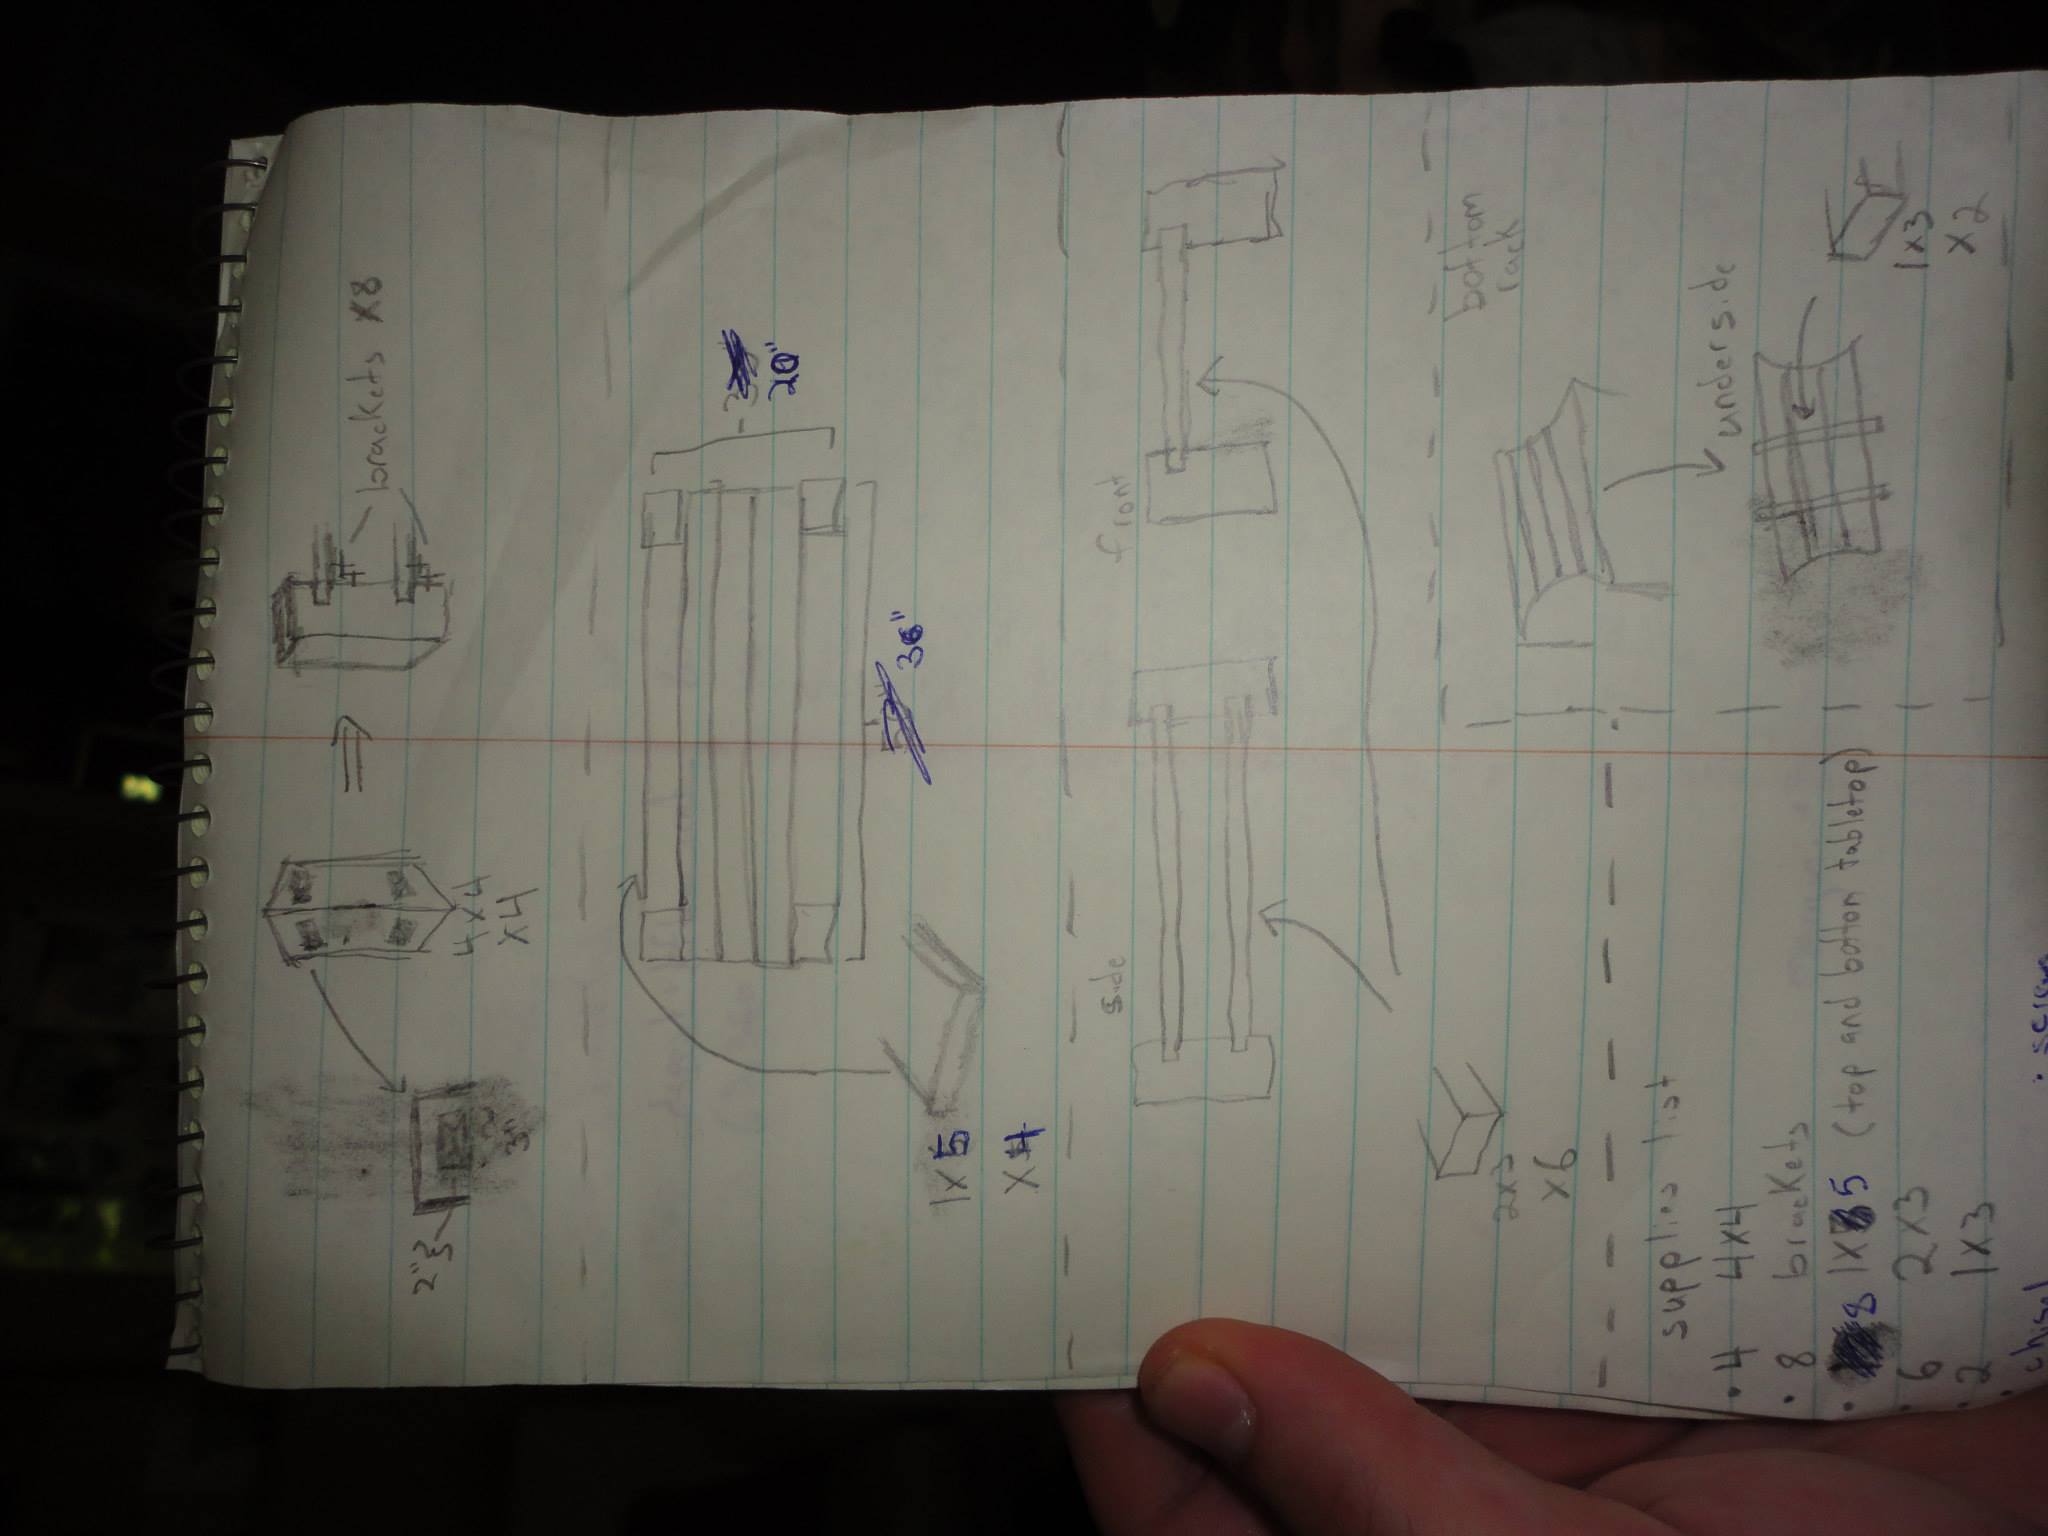 brackets x8
4x4
x4
2"
3"
20"
36"
1x5
x4
side
front
2x3
x6
bottom
rack
underside
1x3
x2
supplies list
• 4 4x4
• 8 brackets
• 8 1x5 (top and bottom tabletop)
• 6 2x3
• 2 1x3
• chisel